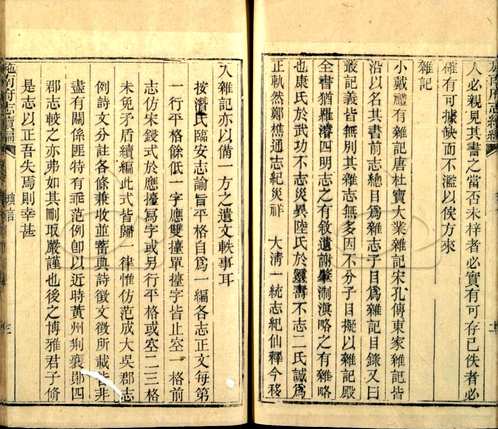 人必親見其書之當否未梓者必實有可存已佚者必
確有可據缺而不濫以俟方來
雜記
小戴禮有雜記唐杜寶大業雜記宋孔傳東家雜記皆
沿以名其書前志總目爲雜志子目爲雜記目錄又曰
叢記義皆無別其雜志無多因不分子目擬以雜記殿
全書猶羅濬四明志之有敘遺謝肇淛滇略之有雜略
也康氏於武功不志災異陸氏於靈壽不志二氏誠爲
正軌然鄭樵通志紀災祥 大清一統志紀仙釋今移
入雜記亦以備一方之遺文軼事耳
按潛氏臨安志諭旨平格自爲一編各志正文每第
一行平格餘低一字應雙擡單擡字皆止空一格前
志仿宋錢式於應擡寫字或另行平格或空二三格
未免矛盾續編此式皆歸一律惟仿范成大吳郡志
例詩文分註各條兼收並蓄典詩徵文徵所載非
盡有關係匪特有乖范例卽以近時黃州荊襄鄖四
郡志較之亦弗如其刪取嚴謹也後之博雅君子脩
是志以正吾失焉則幸甚
施南府志續編